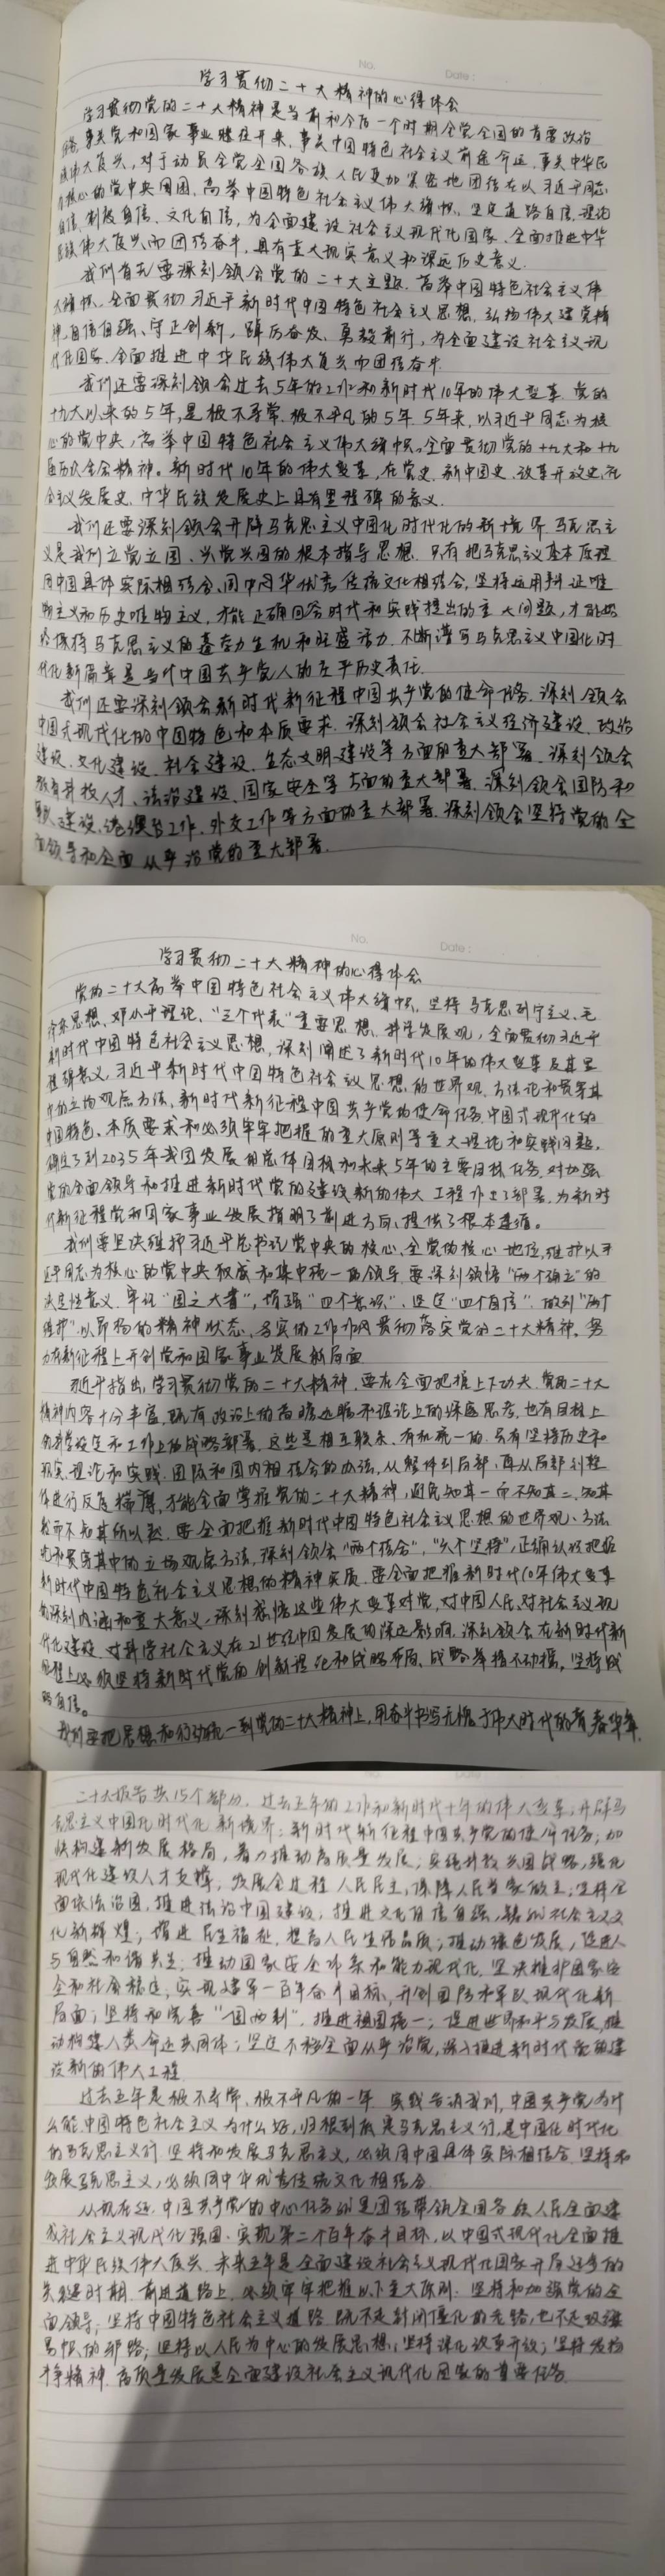 No.
Date:
学习贯彻二十大精神的心得体会
学习贯彻党的二十大精神是当前和今后一个时期全党全国的首要政治
事关党和国家事业继往开来,事关中国特色社会主义前途命运,事关中华民
伟大复兴,对于动员全党全国各族人民更加紧密地团结在以习近平同志
核心的党中央周围,高举中国特色社会主义伟大旗帜,坚定道路自信、理论
自信、制度自信、文化自信,为全面建设社会主义现代化国家、全面推进中华
民族伟大复兴而团结奋斗,具有重大现实意义和深远历史意义.
我们首先要深刻领会党的二十大主题.高举中国特色社会主义伟
大旗帜,全面贯彻习近平新时代中国特色社会主义思想,弘扬伟大建党精
神,自信自强、守正创新,踔厉奋发、勇毅前行,为全面建设社会主义现
代化国家、全面推进中华民族伟大复兴而团结奋斗.
我们还要深刻领会过去5年的工作和新时代10年的伟大变革.党的
十九大以来的5年,是极不寻常、极不平凡的5年.5年来,以习近平同志为核
心的党中央,高举中国特色社会主义伟大旗帜,全面贯彻党的十九大和十九
届历次全会精神。新时代10年的伟大变革,在党史、新中国史、改革开放史、社
会主义发展史、中华民族发展史上具有里程碑的意义.
我们还要深刻领会开辟马克思主义中国化时代化的新境界.马克思主
义是我们立党立国、兴党兴国的根本指导思想.只有把马克思主义基本原理
同中国具体实际相结合、同中华优秀传统文化相结合,坚持运用辩证唯
物主义和历史唯物主义,才能正确回答时代和实践提出的重大问题,才能始
终保持马克思主义的蓬勃生机和旺盛活力.不断谱写马克思主义中国化时
代化新篇章是当代中国共产党人的庄严历史责任.
我们还要深刻领会新时代新征程中国共产党的使命任务.深刻领会
中国式现代化的中国特色和本质要求.深刻领会社会主义经济建设、政治
建设、文化建设、社会建设、生态文明建设等方面的重大部署.深刻领会
教育科技人才、法治建设、国家安全等方面的重大部署.深刻领会国防和
军队建设、港澳台工作、外交工作等方面的重大部署.深刻领会坚持党的全
面领导和全面从严治党的重大部署.
No.
Date:
学习贯彻二十大精神的心得体会
党的二十大高举中国特色社会主义伟大旗帜,坚持马克思列宁主义、毛
泽东思想、邓小平理论、“三个代表”重要思想、科学发展观,全面贯彻习近平
新时代中国特色社会主义思想,深刻阐述了新时代10年的伟大变革及其里
程碑意义、习近平新时代中国特色社会主义思想的世界观、方法论和贯穿其
中的立场观点方法、新时代新征程中国共产党的使命任务、中国式现代化的
中国特色、本质要求和必须牢牢把握的重大原则等重大理论和实践问题,
确定了到2035年我国发展的总体目标和未来5年的主要目标任务,对加强
党的全面领导和推进新时代党的建设新的伟大工程作出了部署,为新时
代新征程党和国家事业发展指明了前进方向、提供了根本遵循。
我们要坚决维护习近平总书记党中央的核心、全党的核心地位,维护以习
近平同志为核心的党中央权威和集中统一的领导.要深刻领悟“两个确立”的
决定性意义,牢记“国之大者”,增强“四个意识”、坚定“四个自信”、做到“两个
维护”.以昂扬的精神状态、务实的工作作风贯彻落实党的二十大精神,努
力在新征程上开创党和国家事业发展新局面
习近平指出,学习贯彻党的二十大精神,要在全面把握上下功夫.党的二十大
精神内容十分丰富,既有政治上的高瞻远瞩和理论上的深邃思考,也有目标上
的科学设定和工作上的战略部署,这些是相互联系、有机统一的.只有坚持历史和
现实、理论和实践、国际和国内相结合的办法,从整体到局部、再从局部到整
体进行反复揣摩,才能全面掌握党的二十大精神,避免知其一而不知其二、知其
然而不知其所以然.要全面把握新时代中国特色社会主义思想的世界观、方法
论和贯穿其中的立场观点方法,深刻领会“两个结合”、“六个坚持”,正确认识把握
新时代中国特色社会主义思想的精神实质.要全面把握新时代10年伟大变革
的深刻内涵和重大意义,深刻感悟这些伟大变革对党、对中国人民、对社会主义现
代化建设、对科学社会主义在21世纪中国发展的深远影响.深刻领会在新时代新
征程上必须坚持新时代党的创新理论和战略布局、战略举措不动摇,坚持战
略自信。
我们要把思想和行动统一到党的二十大精神上,用奋斗书写无愧于伟大时代的青春华章.
二十大报告共15个部分,过去五年的工作和新时代十年的伟大变革;开辟马
克思主义中国化时代化新境界;新时代新征程中国共产党的使命任务;加
快构建新发展格局,着力推动高质量发展;实施科教兴国战略,强化
现代化建设人才支撑;发展全过程人民民主,保障人民当家做主;坚持全
面依法治国,推进法治中国建设;推进文化自信自强,铸就社会主义文
化新辉煌;增进民生福祉,提高人民生活品质;推动绿色发展,促进人
与自然和谐共生;推动国家安全体系和能力现代化,坚决维护国家安
全和社会稳定;实现建军一百年奋斗目标,开创国防和军队现代化新
局面;坚持和完善“一国两制”,推进祖国统一;促进世界和平与发展,推
动构建人类命运共同体;坚定不移全面从严治党,深入推进新时代党的建
设新的伟大工程
过去五年是极不寻常、极不平凡的一年.实践告诉我们,中国共产党为什
么能,中国特色社会主义为什么好,归根到底是马克思主义行,是中国化时代化
的马克思主义行.坚持和发展马克思主义,必须同中国具体实际相结合.坚持和
发展马克思主义,必须同中华优秀传统文化相结合.
从现在起,中国共产党的中心任务就是团结带领全国各族人民全面建
成社会主义现代化强国、实现第二个百年奋斗目标,以中国式现代化全面推
进中华民族伟大复兴.未来五年是全面建设社会主义现代化国家开局起步的
关键时期.前进道路上,必须牢牢把握以下重大原则:坚持和加强党的全
面领导;坚持中国特色社会主义道路,既不走封闭僵化的老路,也不走改旗
易帜的邪路;坚持以人民为中心的发展思想;坚持深化改革开放;坚持发扬
斗争精神.高质量发展是全面建设社会主义现代化国家的首要任务.